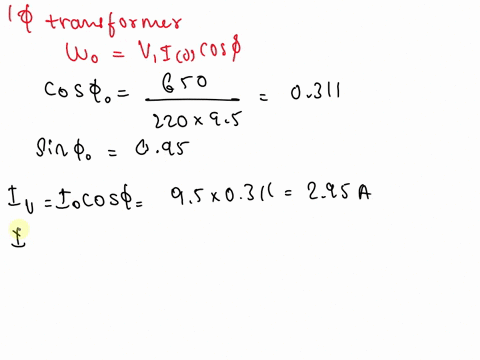 1ϕ transformer
W₀ = V₁ I(0) cosϕ
cosϕ₀ = 650 / 220 × 9.5 = 0.311
Sinϕ₀ = 0.95
I_U = I₀cosϕ = 9.5 × 0.311 = 2.95 A
I